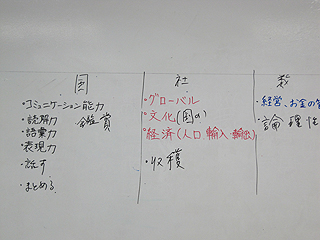 国
・コミュニケーション能力
・読解力 鑑賞
・語彙力
・表現力
・話す
・まとめる
社
・グローバル
・文化(国の)
・経済(人口 輸入・輸出)
・収穫
数
・経営、お金の
・論理性